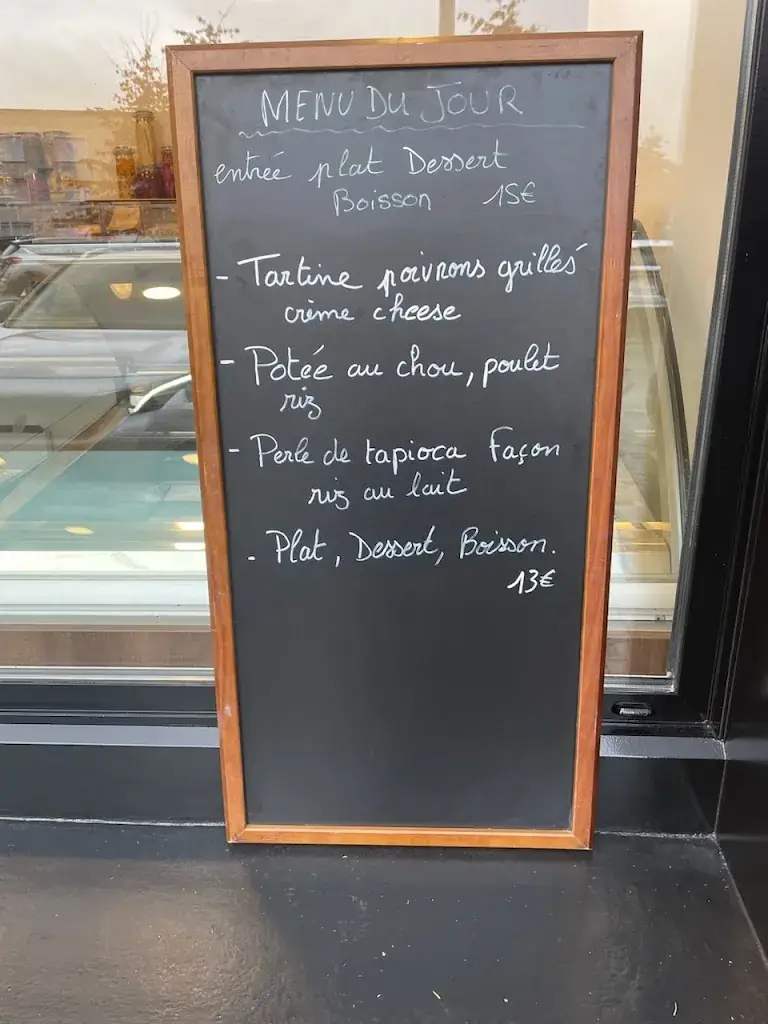 MENU DU JOUR
entrée plat Dessert
Boisson 15€
- Tartine poivrons grillés
crème cheese
- Potée au chou, poulet
riz
- Perle de tapioca façon
riz au lait
- Plat, Dessert, Boisson.
13€